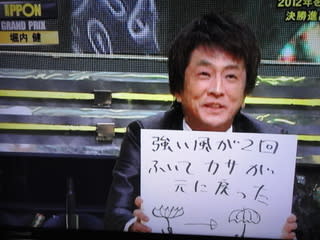 IPPON
GRAND PRIX
堀内 健
2012年を
決勝進
強い風が2回
ふいてカサが
元に戻った